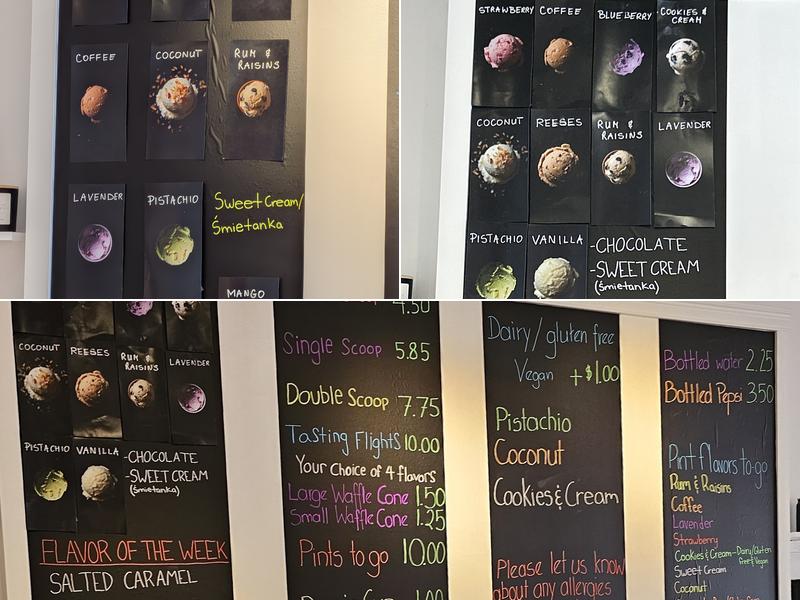 COFFEE
COCONUT
RUM &
RAISINS
LAVENDER
PISTACHIO
Sweet Cream/
Śmietanka
MANGO
STRAWBERRY
COFFEE
BLUEBERRY
COOKIES &
CREAM
COCONUT
REESES
RUM &
RAISINS
LAVENDER
PISTACHIO
VANILLA
-CHOCOLATE
-SWEET CREAM
(Śmietanka)
COCONUT
REESES
RUM &
RAISINS
LAVENDER
PISTACHIO
VANILLA
-CHOCOLATE
-SWEET CREAM
(Śmietanka)
FLAVOR OF THE WEEK
SALTED CARAMEL
4.50
Single Scoop 5.85
Double Scoop 7.75
Tasting Flights 10.00
Your Choice of 4 flavors
Large Waffle Cone 1.50
Small Waffle Cone 1.25
Pints to go 10.00
Dairy/gluten free
Vegan +$1.00
Pistachio
Coconut
Cookies & Cream
Please let us know
about any allergies
Bottled water 2.25
Bottled Pepsi 3.50
Pint flavors to-go
Rum & Raisins
Coffee
Lavender
Strawberry
Cookies & Cream-Dairy/Gluten
free & Vegan
Sweet Cream
Coconut